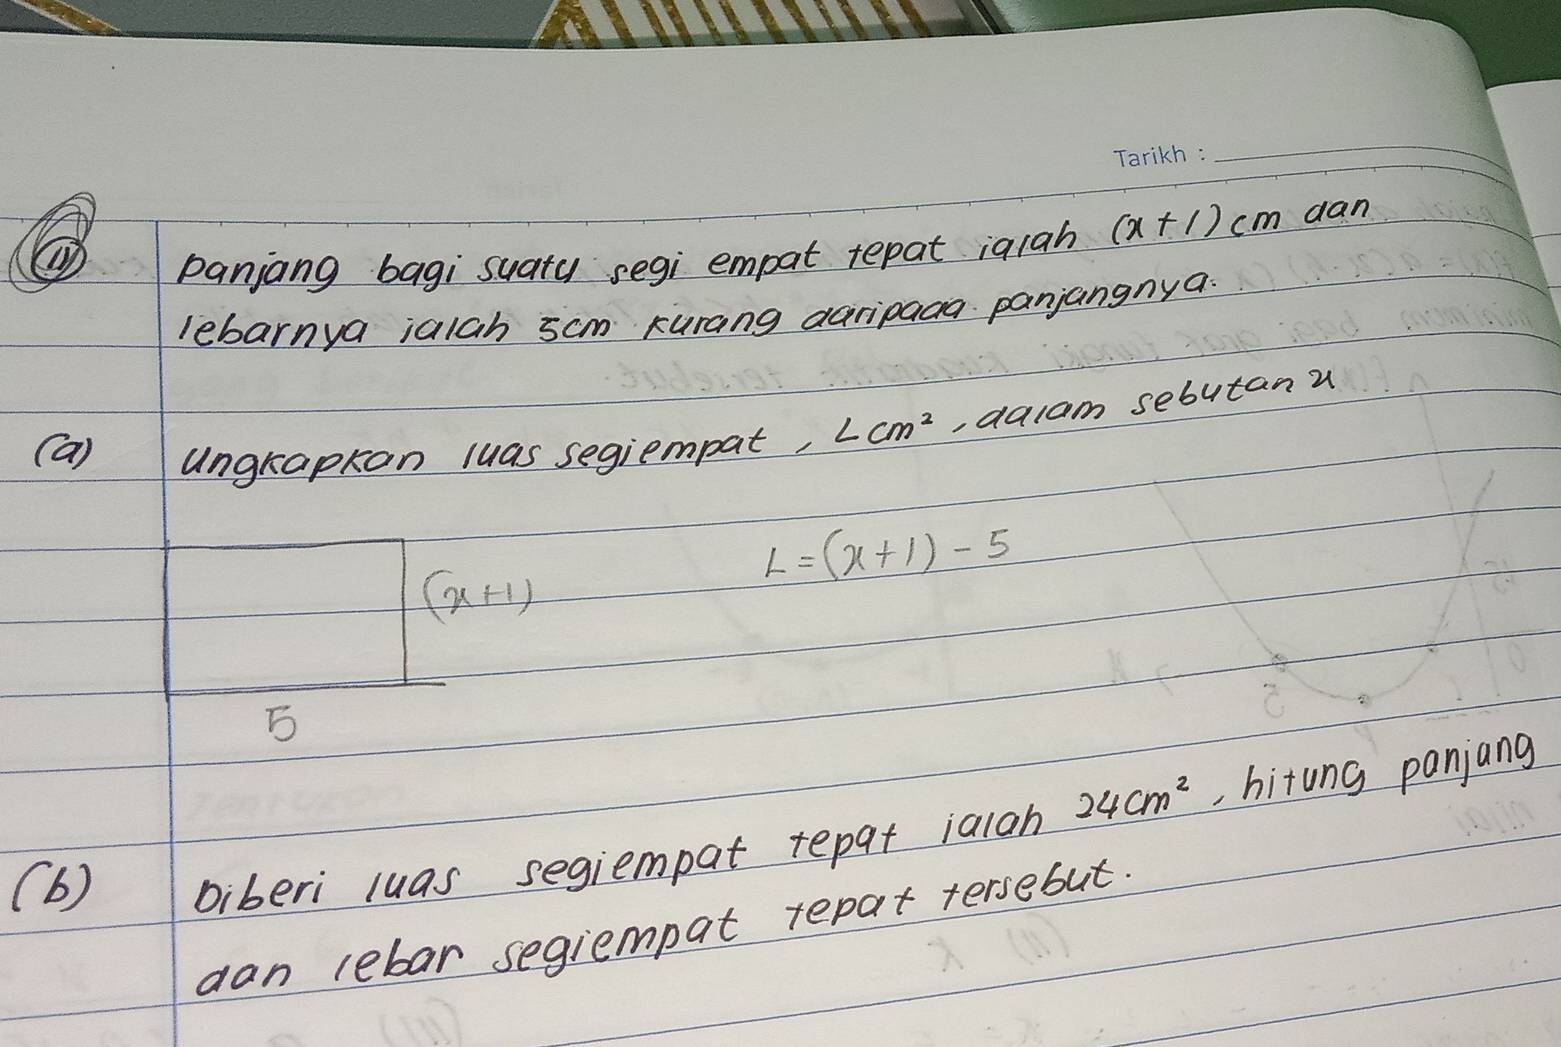 Tarikh :
(11) panjang bagi suatu segi empat tepat ialah (x+1) cm dan
lebarnya ialah 5cm kurang daripada panjangnya.
(a) ungkapkan luas segiempat, L cm², dalam sebutan x
L = (x+1) - 5
(x+1)
5
(b) Diberi luas segiempat tepat ialah 24cm², hitung panjang
dan lebar segiempat tepat tersebut.